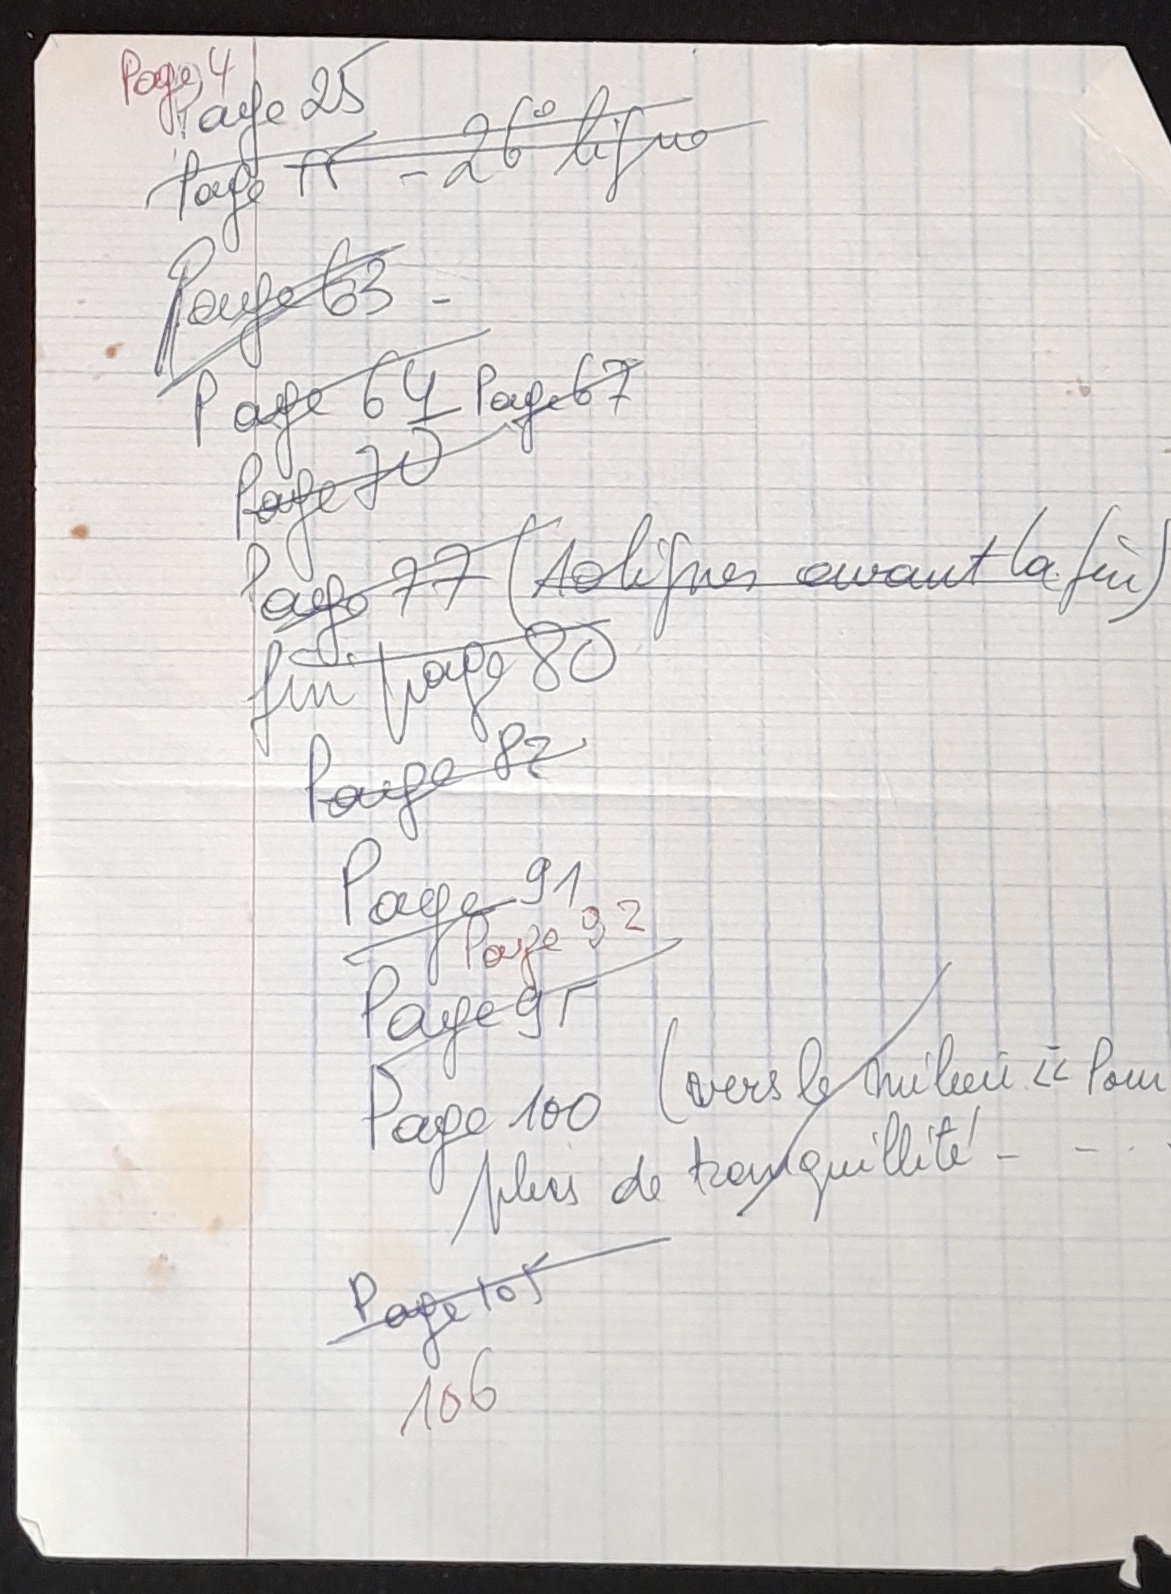 Page 4
Page 25
Page 55 - 26e ligne
Page 63 -
Page 64 Page 67
Page 70
Page 77 (10 lignes avant la fin)
fin page 80
Page 82
Page 91
Page 92
Page 95
Page 100 (vers le milieu << Pour
plus de tranquillité - - . .
Page 105
106